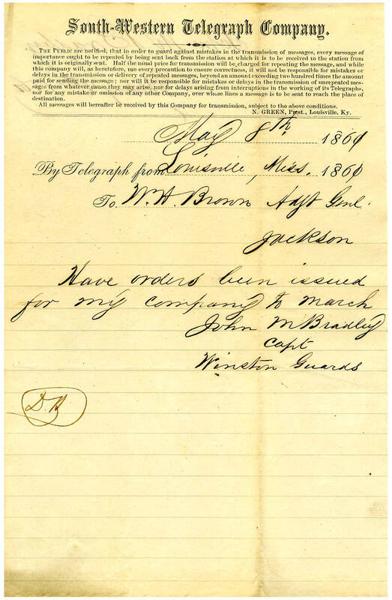 South-Western Telegraph Company.
THE PUBLIC are notified, that in order to guard against mistakes in the transmission of messages, every message of
importance ought to be repeated by being sent back from the station at which it is to be received to the station from
which it is originally sent. Half the usual price for transmission will be charged for repeating the message, and while
this company will, as heretofore, use every precaution to ensure correctness, it will not be responsible for mistakes or
delays in the transmission or delivery of repeated messages, beyond an amount exceeding two hundred times the amount
paid for sending the message; nor will it be responsible for mistakes or delays in the transmission of unrepeated mes-
sages from whatever cause they may arise, nor for delays arising from interruptions in the working of its Telegraphs,
nor for any mistake or omission of any other Company, over whose lines a message is to be sent to reach the place of
destination.
All messages will hereafter be received by this Company for transmission, subject to the above conditions.
N. GREEN, Prest., Louisville, Ky.
May 8th 1861
By Telegraph from Louisville, Miss. 1861
To W. H. Brown Adjt Genl.
Jackson
Have orders been issued
for my company to march
John M Bradley
Capt
Winston Guards
D. H